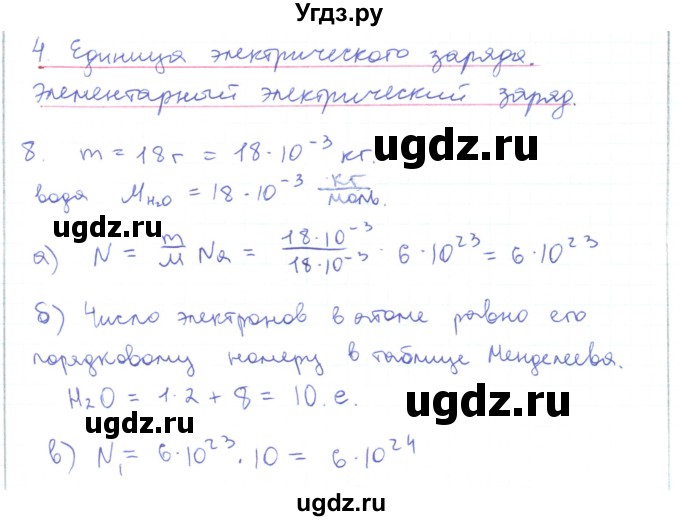 Угдз.ру
4. Единица электрического заряда.
Элементарный электрический заряд.
ugdz.ru ugdz.ru
8. m = 18 г = 18·10⁻³ кг.
вода M_H₂O = 18·10⁻³ кг/моль.
ugdz.ru
а) N = m/M Nа = 18·10⁻³/18·10⁻³ · 6·10²³ = 6·10²³
ugdz.ru
б) Число электронов в атоме равно его
порядковому номеру в таблице Менделеева.
H₂O = 1·2 + 8 = 10.е.
ugdz.ru ugdz.ru
в) N₁ = 6·10²³·10 = 6·10²⁴
ugdz.ru